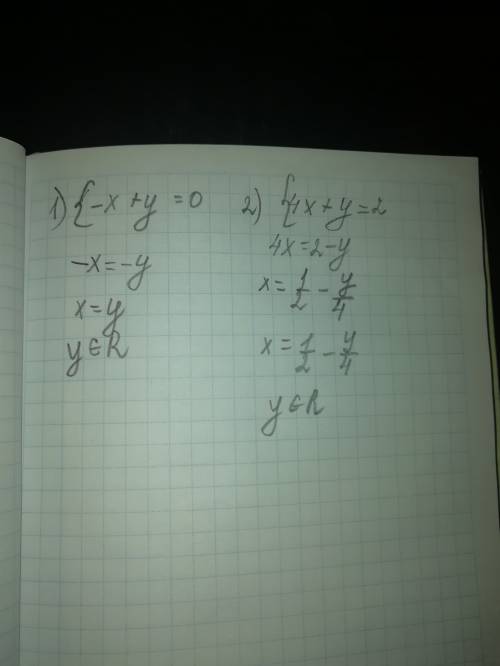 1) {-x + y = 0
-x = -y
x = y
y ∈ R
2) {4x + y = 2
4x = 2 - y
x = 1/2 - y/4
x = 1/2 - y/4
y ∈ R